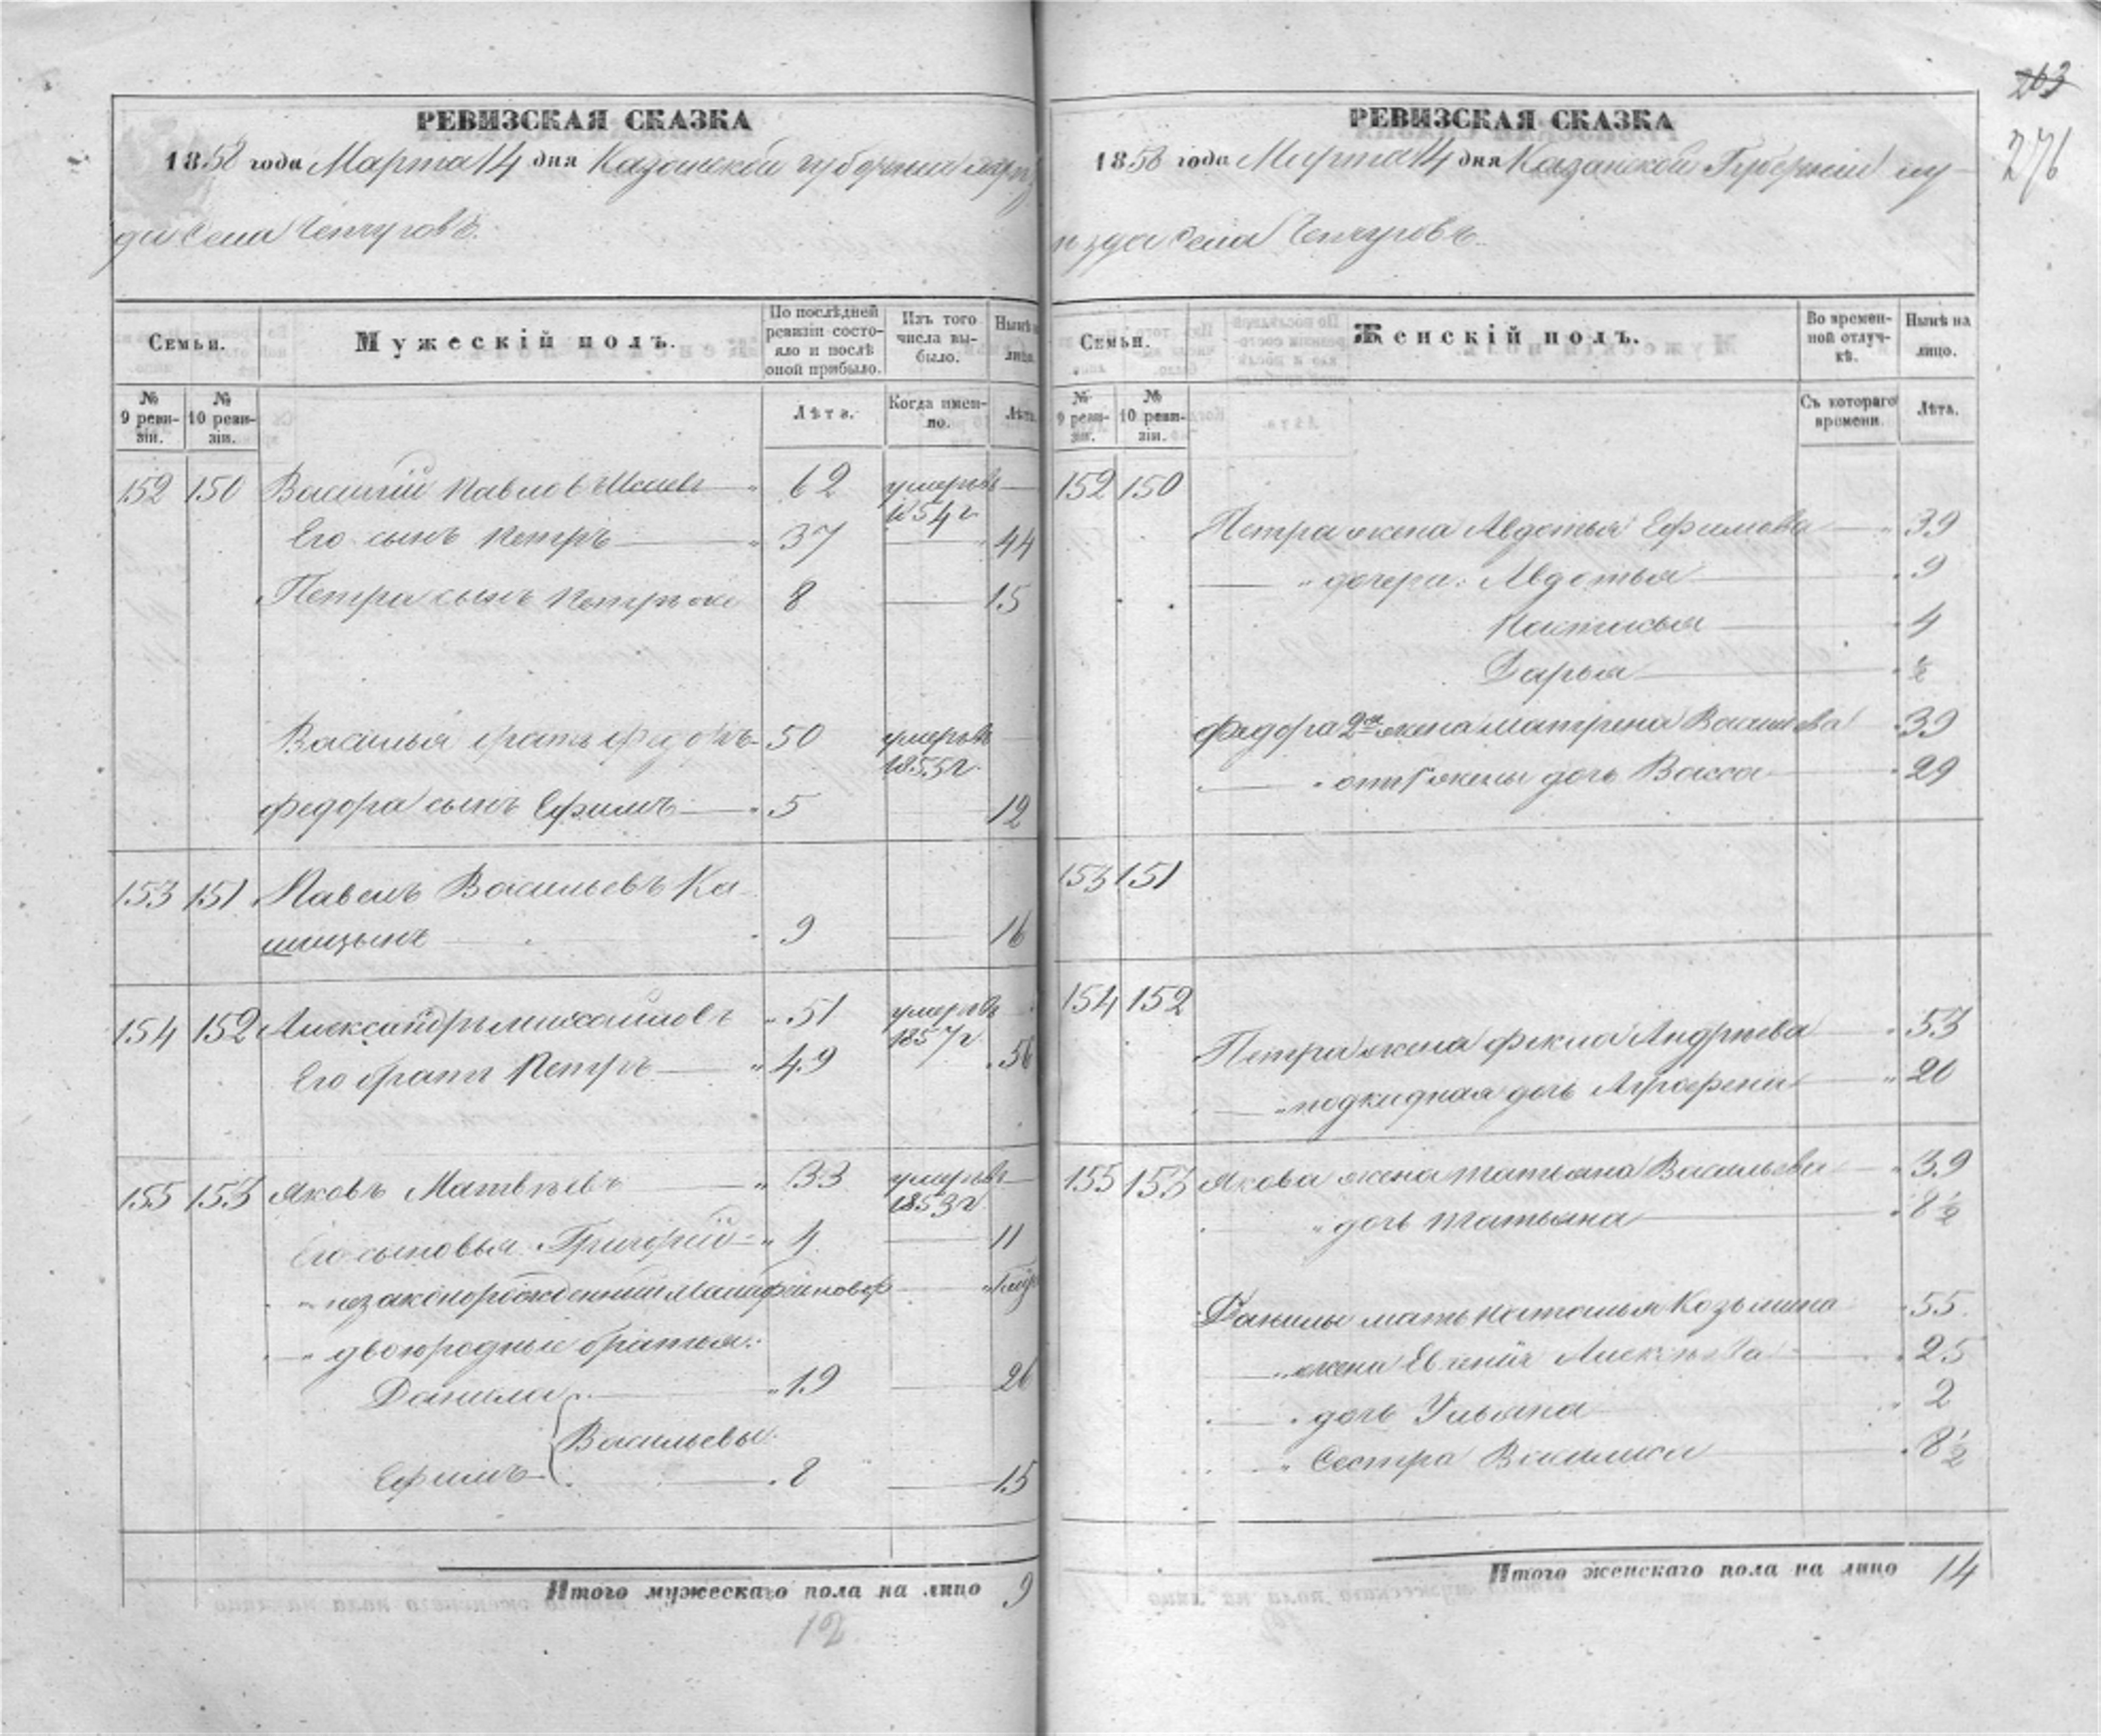 РЕВИЗСКАЯ СКАЗКА
1858 года Марта 14 дня Казанской губернии
да села Чепчуговъ.
Семьи.
Мужескій полъ.
По послѣдней ревизіи состояло и послѣ оной прибыло.
Изъ того числа выбыло.
Нынѣ на лицо.
№ 9 ревизіи.
№ 10 ревизіи.
Лѣта.
Когда именно.
Лѣта.
152 150 Василій Павловъ 62 умеръ 1854 г
Его сынъ Петръ 37 44
Петра сынъ Петръ же 8 15
Василья братъ Федоръ 50 умеръ 1853 г.
Федора сынъ Ефимъ 5 12
153 151 Павелъ Васильевъ Ка-
шицынъ 9 16
154 152 Александръ Михайловъ 51 умеръ 1857 г
Его братъ Петръ 49 56
155 153 Яковъ Матвѣевъ 33 умеръ 1853 г.
Его сыновья Григорій 4 11
незаконорожденный
двоюродные братья:
Данила 19 26
Васильевы
Ефимъ 8 15
Итого мужескаго пола на лицо 9
12
263
276
РЕВИЗСКАЯ СКАЗКА
1858 года Марта 14 дня Казанской Губерніи
ѣзда села Чепчуговъ.
Семьи.
Женскій полъ.
Во временной отлучкѣ.
Нынѣ на лицо.
№ 9 ревизіи.
№ 10 ревизіи.
Съ котораго времени.
Лѣта.
152 150
Петра жена Авдотья Ефимова 39
дочери: Авдотья 9
Настасья 4
Дарья ½
Федора 2я жена Матрена Васильева 39
отъ 1 жены дочь Васса 29
153 151
154 152
Петра жена Фекла Андрѣева 53
подкидная дочь Аграфена 20
155 153 Якова жена Татьяна Васильева 39
дочь Татьяна 8½
Данилы мать Наталья Козьмина 55
жена Евгенія Алексѣева 25
дочь Ульяна 2
Сестра Василиса 8½
Итого женскаго пола на лицо 14